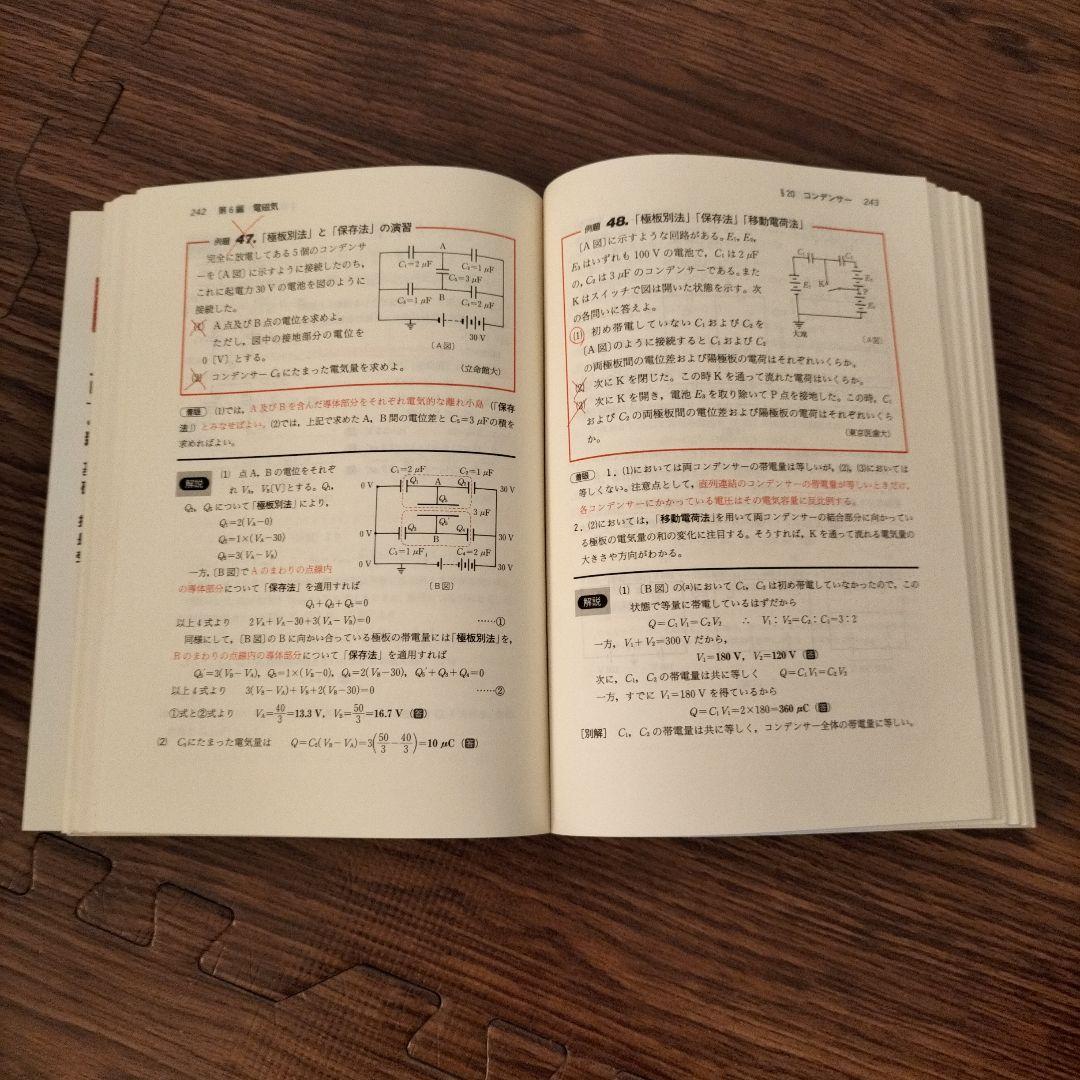 242 第6編 電磁気
例題 47.「極板別法」と「保存法」の演習
完全に放電してある5個のコンデンサ
ーを〔A図〕に示すように接続したのち,
これに起電力30Vの電池を図のように
接続した。
(1) A点及びB点の電位を求めよ。
ただし,図中の接地部分の電位を
0〔V〕とする。
(2) コンデンサーC₅にたまった電気量を求めよ。
(立命館大)
A
C₁=2 μF
C₂=1 μF
C₅=3 μF
C₃=1 μF
B
C₄=2 μF
30 V
〔A図〕
着眼 (1)では,A及びBを含んだ導体部分をそれぞれ電気的な離れ小島(「保存
法」)とみなせばよい。(2)では,上記で求めたA,B間の電位差とC₅=3 μFの積を
求めればよい。
解説 (1) 点A,Bの電位をそれぞ
れ V_A, V_B〔V〕とする。Q₁,
Q₂, Q₅ について「極板別法」により,
Q₁=2(V_A−0)
Q₂=1×(V_A−30)
Q₅=3(V_A−V_B)
一方,〔B図〕でAのまわりの点線内
の導体部分について「保存法」を適用すれば
Q₁+Q₂+Q₅=0
以上4式より 2V_A+V_A−30+3(V_A−V_B)=0 ……①
C₁=2 μF
C₂=1 μF
0 V
Q₁
A
Q₂
30 V
Q₅
3 μF
0 V
Q₃
B
Q₄
30 V
C₃=1 μF
C₄=2 μF
0 V
30 V
〔B図〕
同様にして,〔B図〕のBに向かい合っている極板の帯電量には「極板別法」を,
Bのまわりの点線内の導体部分について「保存法」を適用すれば
Q₅′=3(V_B−V_A), Q₃=1×(V_B−0), Q₄=2(V_B−30), Q₅′+Q₃+Q₄=0
以上4式より 3(V_B−V_A)+V_B+2(V_B−30)=0 ……②
①式と②式より V_A=40/3=13.3 V, V_B=50/3=16.7 V (答)
(2) C₅にたまった電気量は Q=C₅(V_B−V_A)=3(50/3−40/3)=10 μC (答)
§20 コンデンサー 243
例題 48.「極板別法」「保存法」「移動電荷法」
〔A図〕に示すような回路がある。E₁, E₂,
E₃はいずれも100Vの電池で,C₁は2 μF
の,C₂は3 μFのコンデンサーである。また
Kはスイッチで図は開いた状態を示す。次
の各問いに答えよ。
(1) 初め帯電していないC₁およびC₂を
〔A図〕のように接続するとC₁およびC₂
の両極板間の電位差および陽極板の電荷はそれぞれいくらか。
(2) 次にKを閉じた。この時Kを通って流れた電荷はいくらか。
(3) 次にKを開き,電池E₃を取り除いてP点を接地した。この時,C₁
およびC₂の両極板間の電位差および陽極板の電荷はそれぞれいくら
か。
(東京医歯大)
C₁
C₂
E₁
K
E₂
P
E₃
大地
〔A図〕
着眼 1.(1)においては両コンデンサーの帯電量は等しいが,(2),(3)においては
等しくない。注意点として,直列連結のコンデンサーの帯電量が等しいときだけ,
各コンデンサーにかかっている電圧はその電気容量に反比例する。
2.(2)においては,「移動電荷法」を用いて両コンデンサーの結合部分に向かってい
る極板の電気量の和の変化に注目する。そうすれば,Kを通って流れる電気量の
大きさや方向がわかる。
解説 (1) 〔B図〕の(a)においてC₁, C₂は初め帯電していなかったので,この
状態で等量に帯電しているはずだから
Q=C₁V₁=C₂V₂ ∴ V₁:V₂=C₂:C₁=3:2
一方,V₁+V₂=300 Vだから,
V₁=180 V, V₂=120 V (答)
次に,C₁, C₂の帯電量は共に等しく Q=C₁V₁=C₂V₂
一方,すでにV₁=180 Vを得ているから
Q=C₁V₁=2×180=360 μC (答)
[別解] C₁, C₂の帯電量は共に等しく,コンデンサー全体の帯電量に等しい。